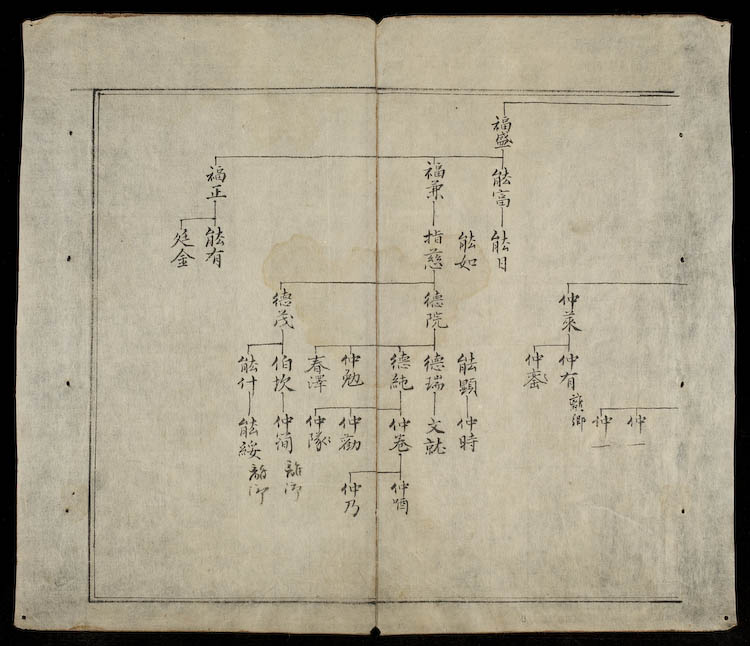 福盛
能富
福兼
福正
能日
能如
指慈
能有
廷金
仲萊
德院
德茂
仲有
離鄉
仲
能顯
德瑞
德純
仲勉
春澤
伯坎
能什
仲
仲
仲時
文就
仲卷
仲勸
仲隊
仲簡
離鄉
能綏
離鄉
仲
仲乃